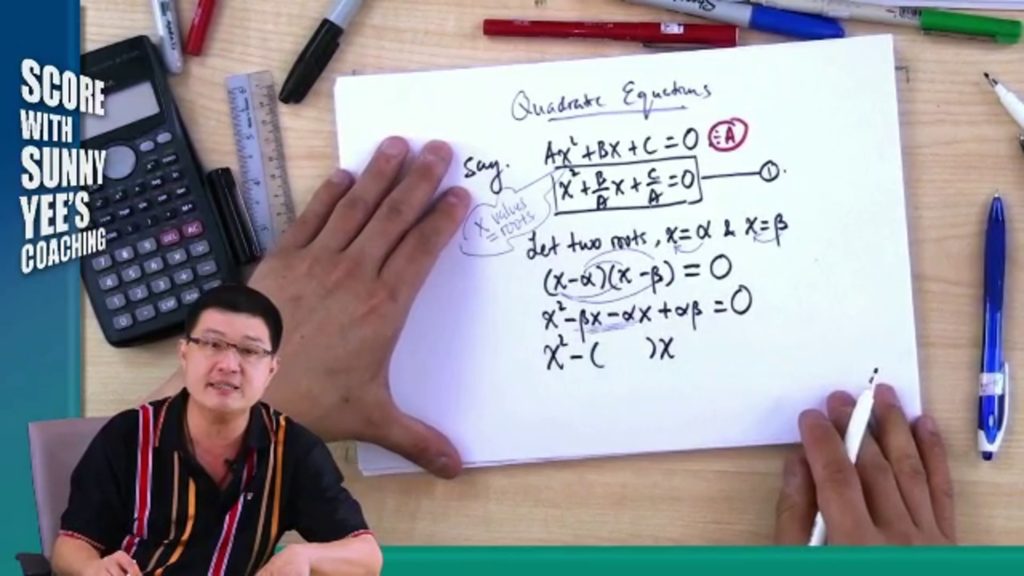 SCORE
WITH
SUNNY
YEE'S
COACHING
Quadratic Equations
Say. Ax² + Bx + C = 0 ÷A
x² + B/A x + C/A = 0 ①.
x values
= roots
Let two roots, x = α & x = β
(x-α)(x-β) = 0
x² - βx - αx + αβ = 0
x² - ( )x
DEL AC
7 8 9
4 5 6
1 2 3
0